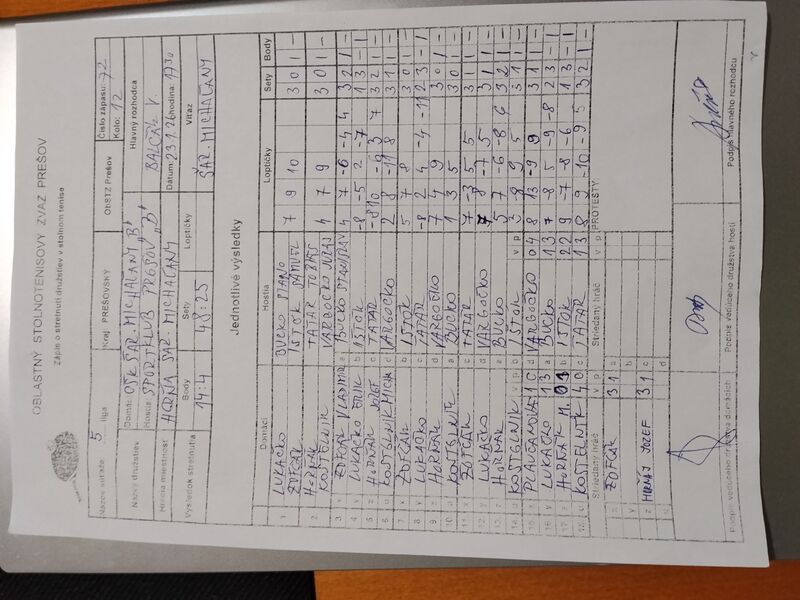 OBLASTNÝ STOLNOTENISOVÝ ZVÄZ PREŠOV
Zápis o stretnutí družstiev v stolnom tenise
Názov súťaže 5 liga Kraj: PREŠOVSKÝ ObSTZ Prešov Číslo zápasu: 72
Kolo: 12
Názov družstiev Domáci: OŠK ŠAR. MICHAĽANY "B" Hlavný rozhodca
Hostia: ŠPORTKLUB PREŠOV "B" BALČÁK V.
Hracia miestnosť HERŇA ŠAR. MICHAĽANY Dátum: 23.1.26 hodina: 17 30
Výsledok stretnutia Body Sety Loptičky Víťaz
14:4 48:25 ŠAR. MICHAĽANY
Jednotlivé výsledky
Domáci Hostia Loptičky Sety Body
1 LUKAČKO BUCKO 7 9 10 3 0 1 -
ZOFČÁK IŠTOK
2 HORŇÁK TATAR TOBIAS 4 7 9 3 0 1 -
KOSTELNÍK VARGOČKO
3 x ZOFČÁK VLADIMÍR a BUCKO STANISLAV 4 7 -6 -4 4 3 2 1 -
4 y LUKAČKO ERIK b IŠTOK -8 -5 2 -7 1 3 - 1
5 z HORŇÁK JOZEF c TATAR -8 10 -9 3 7 3 2 1 -
6 u KOSTELNÍK MICHAL d VARGOČKO 2 8 -11 8 3 1 1 -
7 x ZOFČÁK b IŠTOK 5 7 8 3 0 1 -
8 y LUKAČKO c TATAR -8 2 4 -4 -11 2 3 - 1
9 z HORŇÁK d VARGOČKO 7 4 9 3 0 1 -
10 u KOSTELNÍK a BUCKO 1 3 5 3 0 1 -
11 x ZOFČÁK c TATAR 7 -3 5 5 3 1 1 -
12 y LUKAČKO d VARGOČKO 7 8 -7 5 3 1 1 -
13 z HORŇÁK a BUCKO 5 7 -6 -8 6 3 2 1 -
14 u KOSTELNÍK v p b IŠTOK v p 3 -8 9 5 3 1 1 -
15 x d VARGOČKO 0 4 8 13 -9 9 3 1 1 -
16 y LUKAČKO 1 3 a BUCKO 1 3 7 -8 5 -9 -8 2 3 - 1
17 z HORŇÁK M. b IŠTOK 2 2 9 -7 -8 -6 1 3 - 1
18 u KOSTELNÍK 4 0 c TATAR 1 3 8 9 -10 -9 5 3 2 1 -
Striedaný hráč v p Striedaný hráč v p PROTESTY:
x ZOFČÁK 3 1 a
y b
z JOZEF 3 1 c
u d
Podpis vedúceho družstva domácich Podpis vedúceho družstva hostí Podpis hlavného rozhodcu